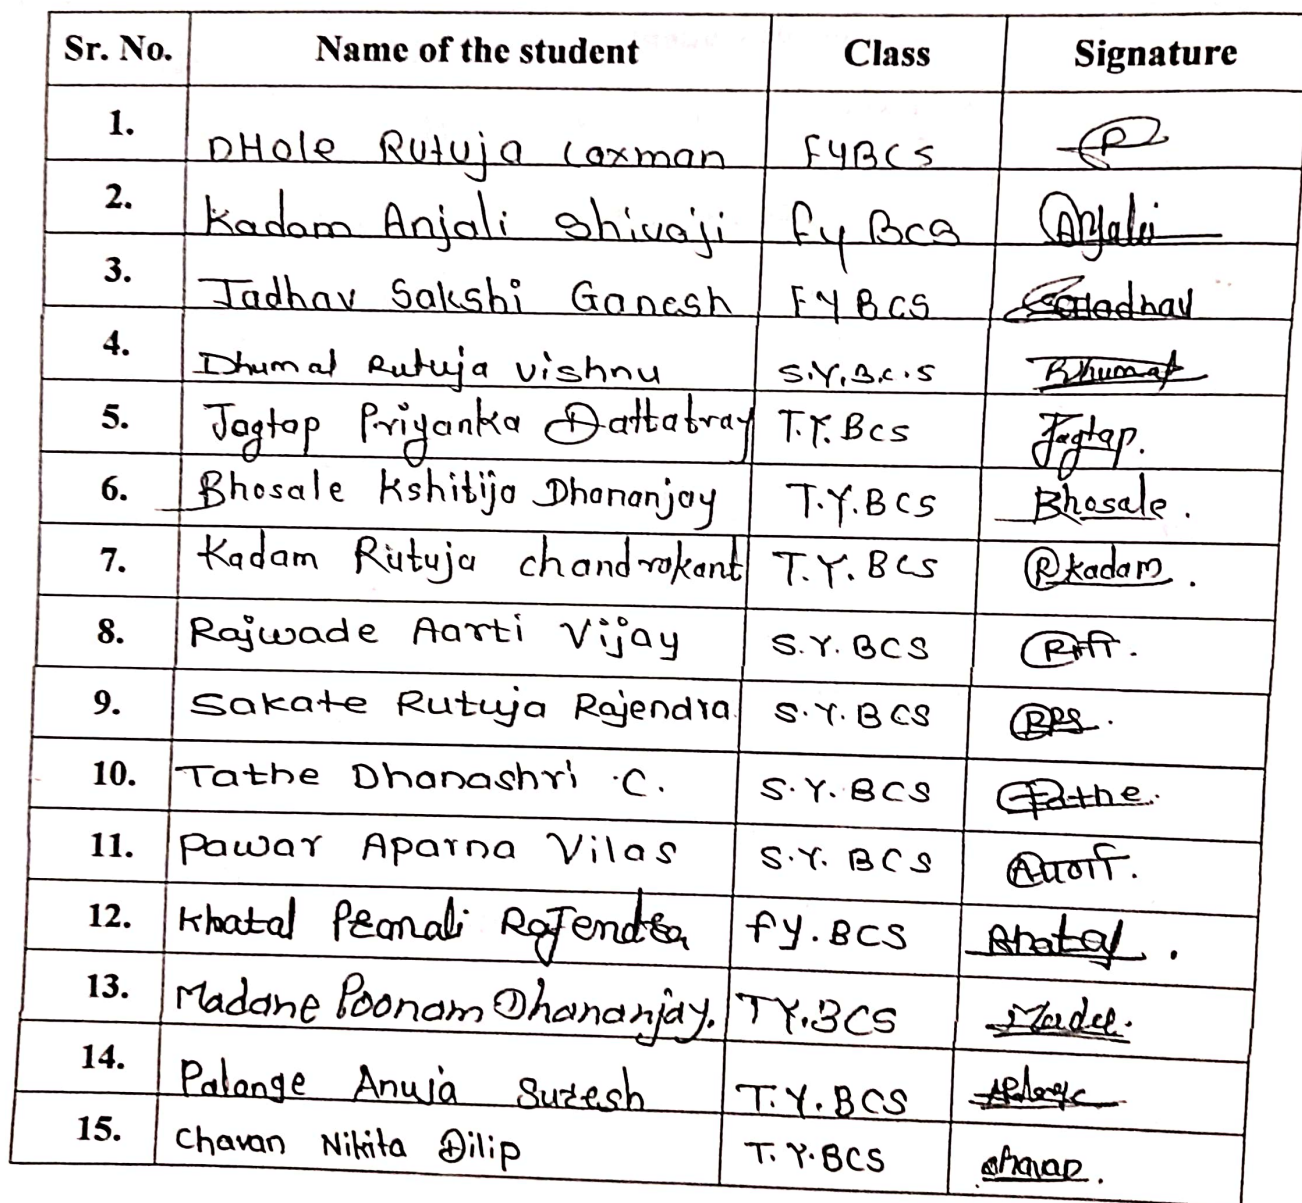 Sr. No. Name of the student Class Signature
1. DHole Rutuja Laxman FYBCS
2. Kadam Anjali Shivaji Fy BCS Anjali
3. Jadhav Sakshi Ganesh FYBCS Jadhav
4. Dhumal Rutuja vishnu S.Y.B.C.S Dhumal
5. Jagtap Priyanka Dattatray T.Y.BCS Jagtap.
6. Bhosale Kshitija Dhananjay T.Y.BCS Bhosale.
7. Kadam Rutuja chandrakant T.Y.BCS Rkadam.
8. Rajwade Aarti Vijay S.Y.BCS
9. Sakate Rutuja Rajendra S.Y.BCS
10. Tathe Dhanashri C. S.Y.BCS Tathe.
11. Pawar Aparna Vilas S.Y.BCS
12. Khatal Pranali Rajendra FY.BCS Khatal.
13. Madane Poonam Dhananjay. TY.BCS
14. Palange Anuja Suresh T.Y.BCS
15. Chavan Nikita Dilip T.Y.BCS chavan.